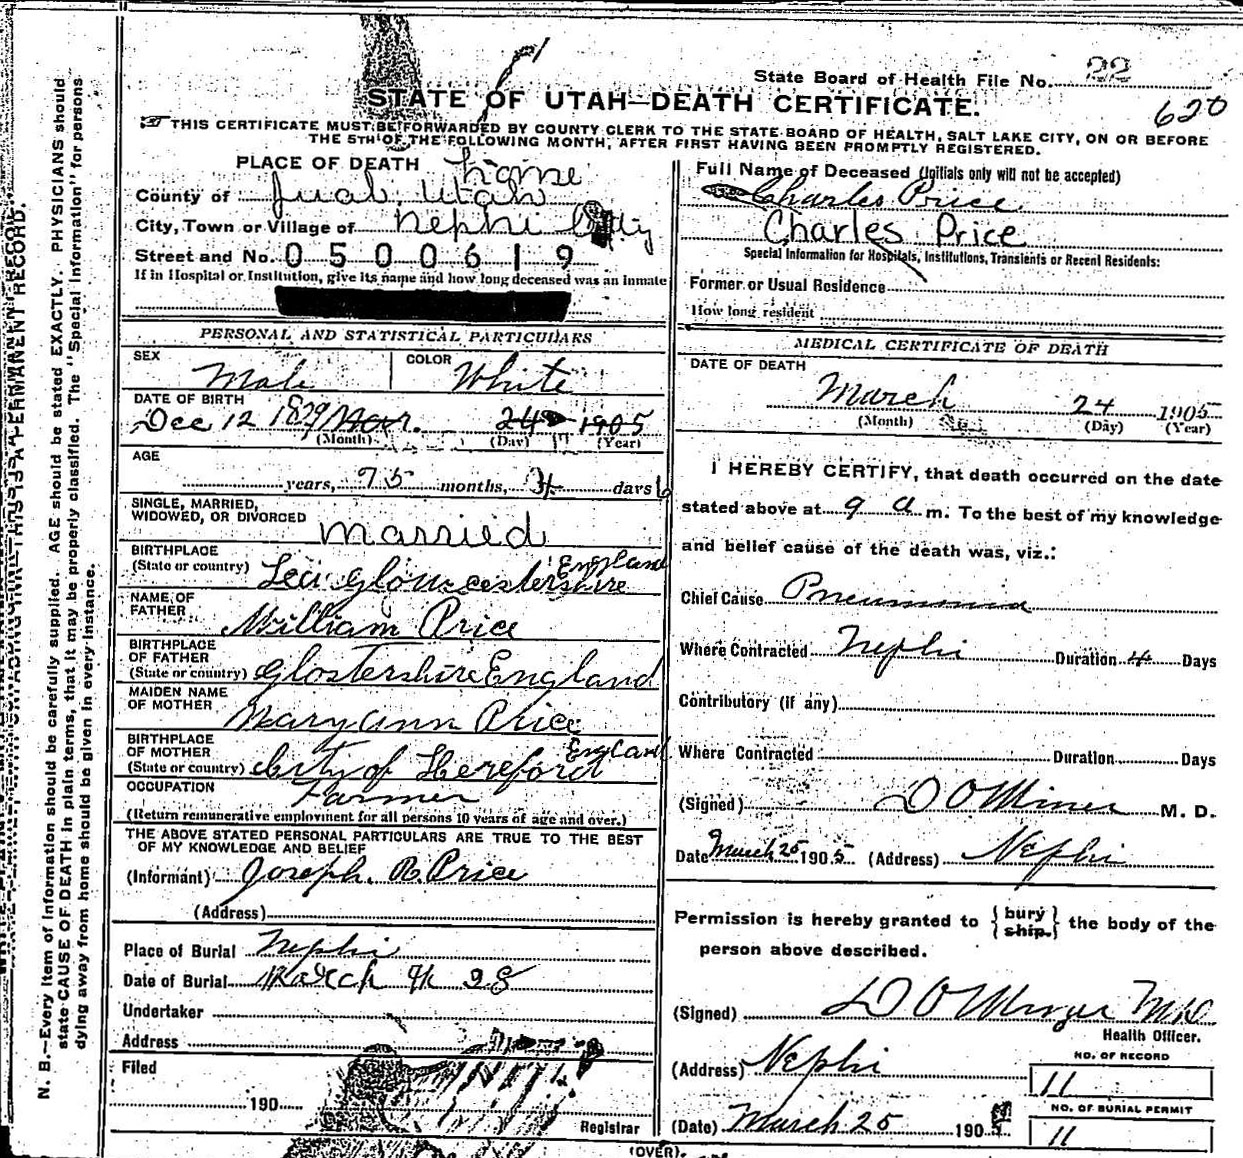 State Board of Health File No. 22
STATE OF UTAH—DEATH CERTIFICATE.
620
THIS CERTIFICATE MUST BE FORWARDED BY COUNTY CLERK TO THE STATE BOARD OF HEALTH, SALT LAKE CITY, ON OR BEFORE
THE 5TH OF THE FOLLOWING MONTH, AFTER FIRST HAVING BEEN PROMPTLY REGISTERED.
PLACE OF DEATH home
County of Juab, Utah
City, Town or Village of Nephi City
Street and No. 0500619
If in Hospital or Institution, give its name and how long deceased was an inmate
PERSONAL AND STATISTICAL PARTICULARS
SEX Male COLOR White
DATE OF BIRTH
Dec 12 1829 Mar. 24 1905
(Month) (Day) (Year)
AGE
years, 75 months, 3 days
SINGLE, MARRIED,
WIDOWED, OR DIVORCED Married
BIRTHPLACE England
(State or country) Lea Gloucestershire
NAME OF
FATHER William Price
BIRTHPLACE
OF FATHER
(State or country) Glostershire England
MAIDEN NAME
OF MOTHER Mary Ann Price
BIRTHPLACE England
OF MOTHER
(State or country) City of Hereford
OCCUPATION Farmer
(Return remunerative employment for all persons 10 years of age and over.)
THE ABOVE STATED PERSONAL PARTICULARS ARE TRUE TO THE BEST
OF MY KNOWLEDGE AND BELIEF
(Informant) Joseph. R. Price
(Address)
Place of Burial Nephi
Date of Burial March 28
Undertaker
Address
Filed
190
Registrar
Full Name of Deceased (Initials only will not be accepted)
Charles Price
Charles Price
Special Information for Hospitals, Institutions, Transients or Recent Residents:
Former or Usual Residence
How long resident
MEDICAL CERTIFICATE OF DEATH
DATE OF DEATH
March 24 1905
(Month) (Day) (Year)
I HEREBY CERTIFY, that death occurred on the date
stated above at 9 a m. To the best of my knowledge
and belief cause of the death was, viz.:
Chief Cause Pneumonia
Where Contracted Nephi Duration 4 Days
Contributory (if any)
Where Contracted Duration Days
(Signed) D O Miner M. D.
Date March 25 1905 (Address) Nephi
Permission is hereby granted to {bury ship.} the body of the
person above described.
(Signed) D O Miner M D
Health Officer.
(Address) Nephi
NO. OF RECORD
11
(Date) March 25 1905
NO. OF BURIAL PERMIT
11
(OVER).
N. B.—Every item of information should be carefully supplied. AGE should be stated EXACTLY. PHYSICIANS should
state CAUSE OF DEATH in plain terms, that it may be properly classified. The "Special Information" for persons
dying away from home should be given in every instance.
THIS IS A PERMANENT RECORD.